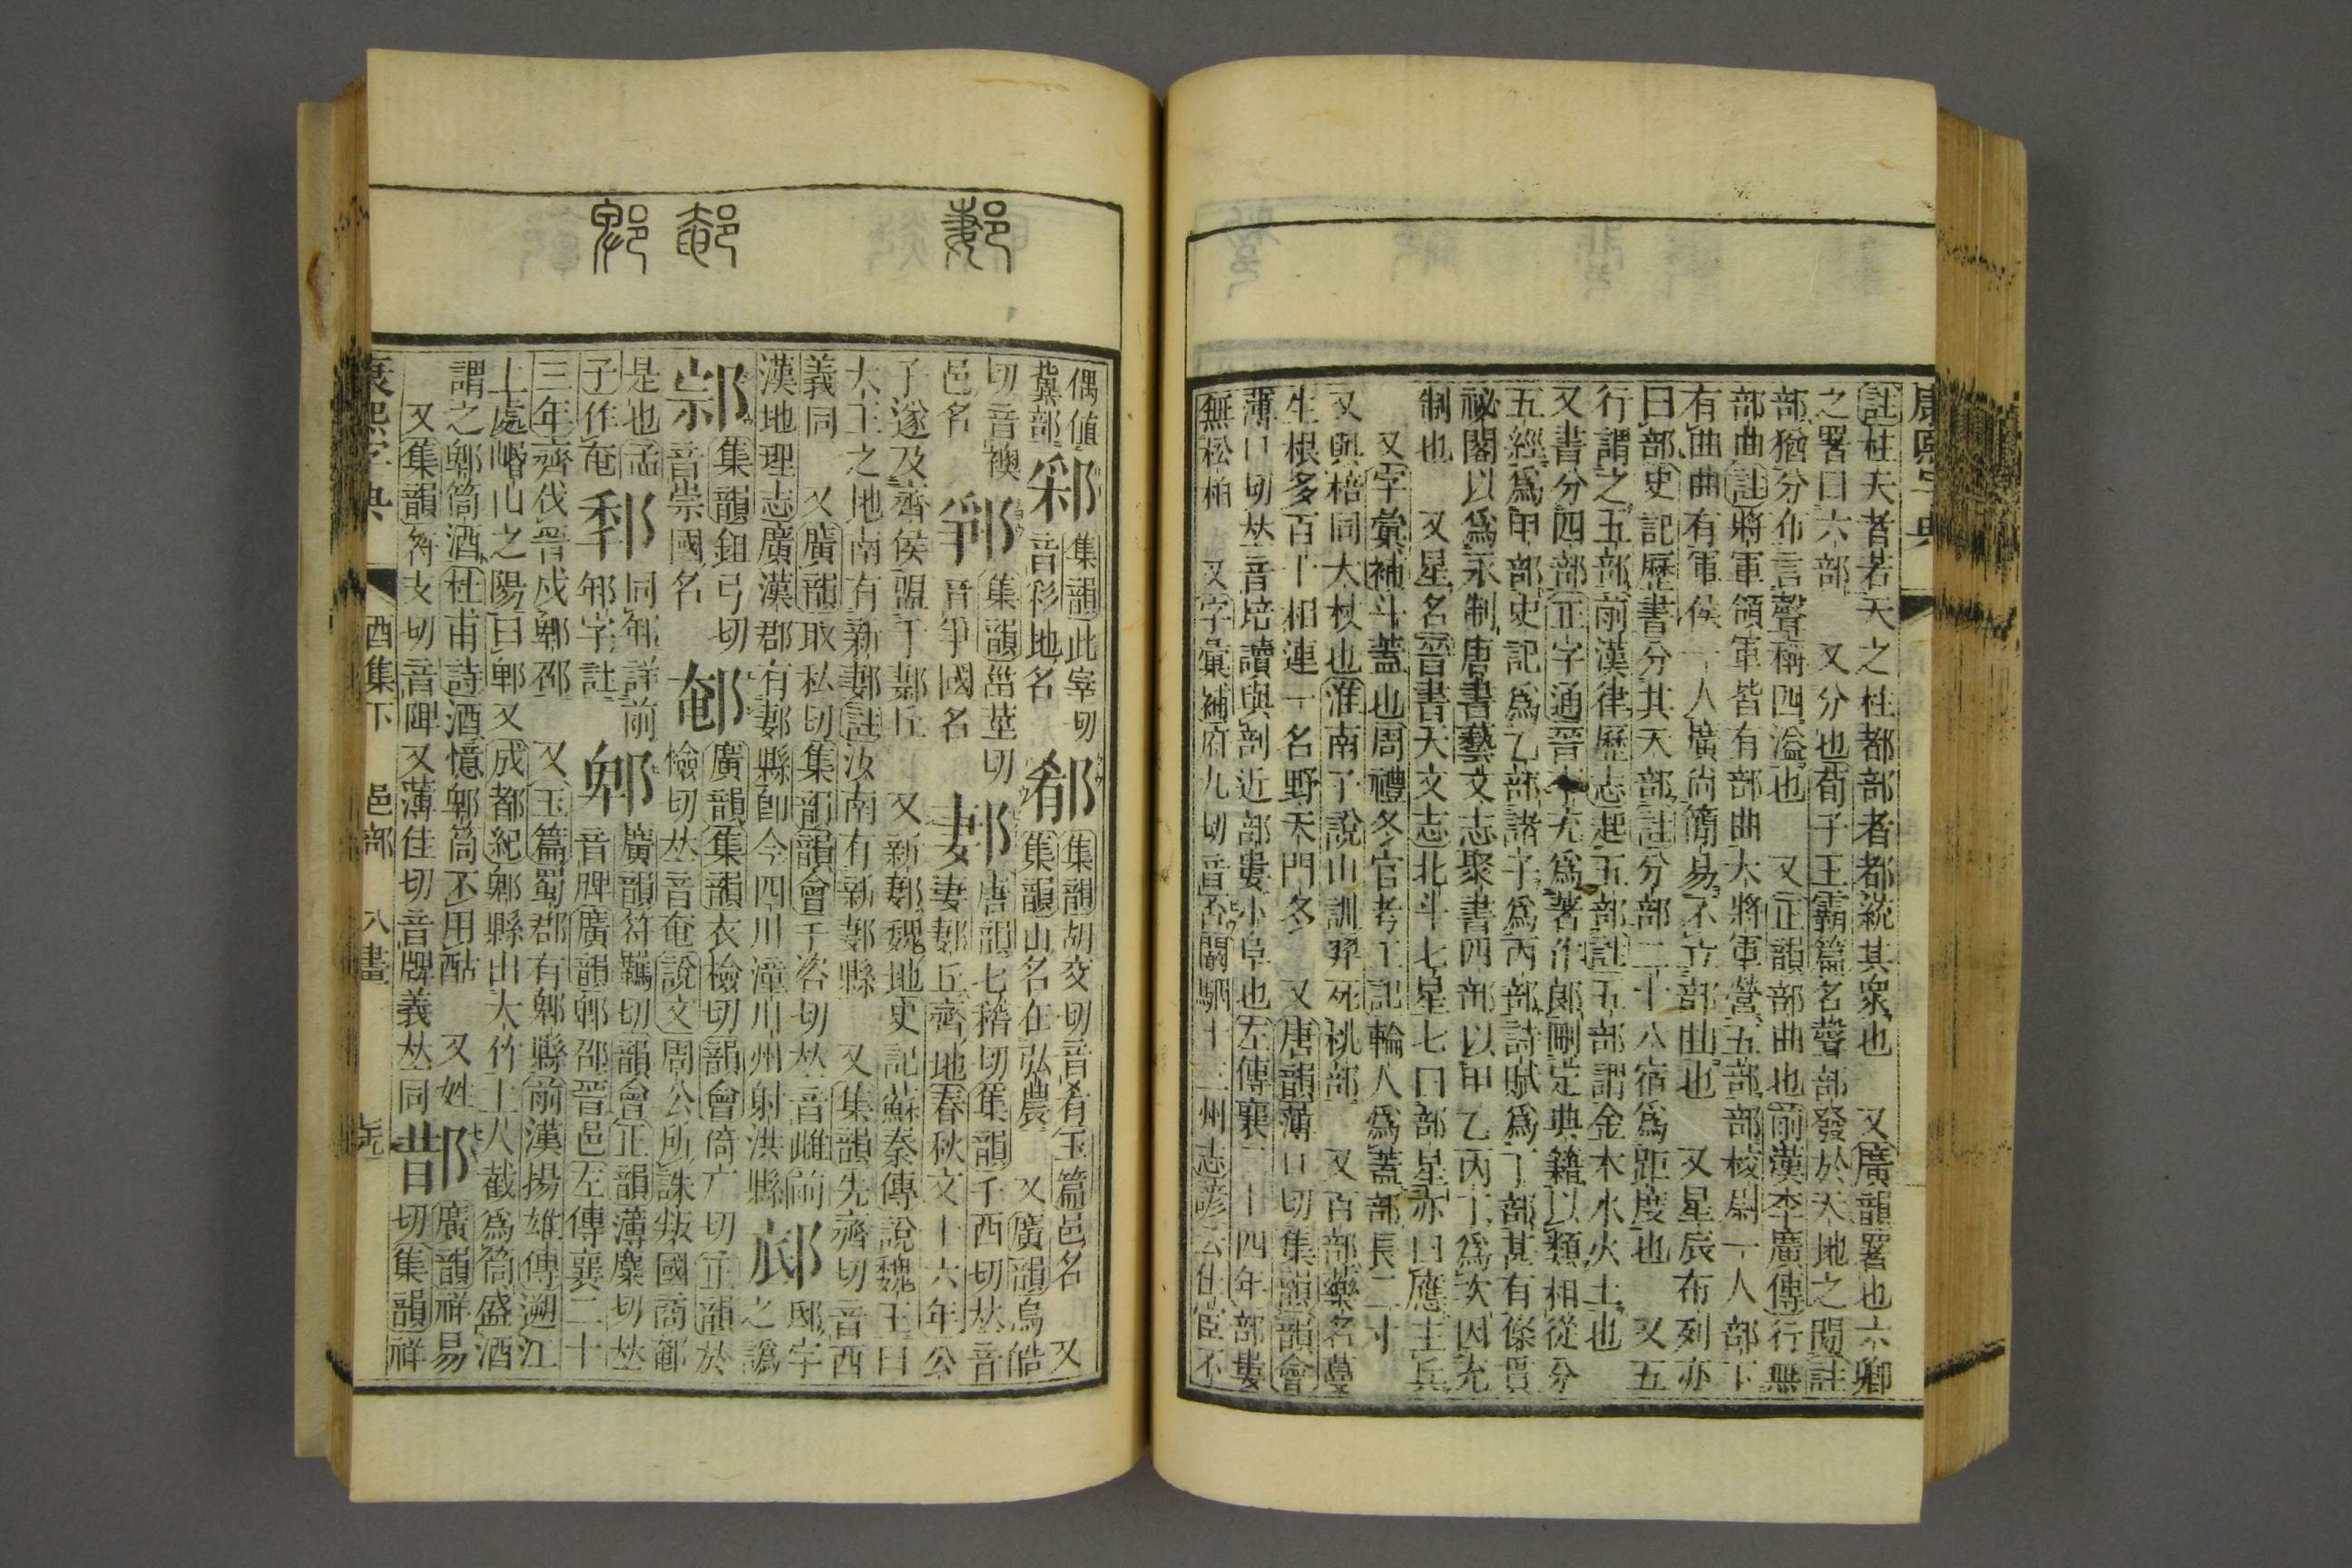 康熙字典
註杜夫者若天之杜都部者都統其衆也　又廣韻署也六卿
之署曰六部　又分也荀子王霸篇名聲部發於天地之閒註
部猶分布言聲稱四溢也　又正韻部曲也前漢李廣傳行無
部曲註將軍領軍皆有部曲大將軍營五部部校尉一人部下
有曲曲有軍侯一人廣尚簡易不立部曲也　又星辰布列亦
曰部史記歷書分其天部註分部二十八宿爲距度也　又五
行謂之五部前漢律歷志起五部註五部謂金木水火土也
又書分四部正字通晉李充爲著作郎刪定典籍以類相從分
五經爲甲部史記爲乙部諸子爲丙部詩賦爲丁部甚有條貫
祕閣以爲永制唐書藝文志聚書四部以甲乙丙丁爲次因充
制也　又星名晉書天文志北斗七星七曰部星亦曰應主兵
又字彙補斗蓋也周禮冬官考工記輪人爲蓋部長二寸
又與棓同大杖也淮南子說山訓羿死桃部　又百部藥名蔓
生根多百十相連一名野天門冬　又唐韻薄口切集韻韻會
薄口切𠀤音培讀與剖近部婁小阜也左傳襄二十四年部婁
無松柏　又字彙補府九切音否闞駰十三州志諺云仕宦不
郪　䣍　郫
偶値
冀部
集韻此宰切
音彩地名
郩
集韻胡交切音肴玉篇邑名　又
集韻山名在弘農　又廣韻烏皓
切音襖
邑名
集韻甾莖切
音爭國名
郪
唐韻七稽切集韻千西切𠀤音
妻郪丘齊地春秋文十六年公
子遂及齊侯盟于郪丘　又新郪魏地史記蘇秦傳說魏王曰
大王之地南有新郪註汝南有新郪縣　又集韻先齊切音西
義同　又廣韻取私切集韻韻會千咨切𠀤音雌前
漢地理志廣漢郡有郪縣卽今四川潼川州射洪縣
邸字
之譌
集韻鉏弓切
音崇國名
䣍
廣韻集韻衣檢切韻會倚广切正韻於
檢切𠀤音奄說文周公所誅叛國商䣍
是也孟
子作奄
同邾詳前
邾字註
郫
廣韻符羈切韻會正韻薄麋切𠀤
音脾廣韻郫邵晉邑左傳襄二十
三年齊伐晉戍郫邵　又玉篇蜀郡有郫縣前漢揚雄傳遡江
上處崏山之陽曰郫又成都紀郫縣出大竹土人截爲筒盛酒
謂之郫筒酒杜甫詩酒憶郫筒不用酤　又姓
又集韻符支切音陴又薄佳切音牌義𠀤同
廣韻祥易
切集韻祥
康熙字典　酉集下　邑部　八畫